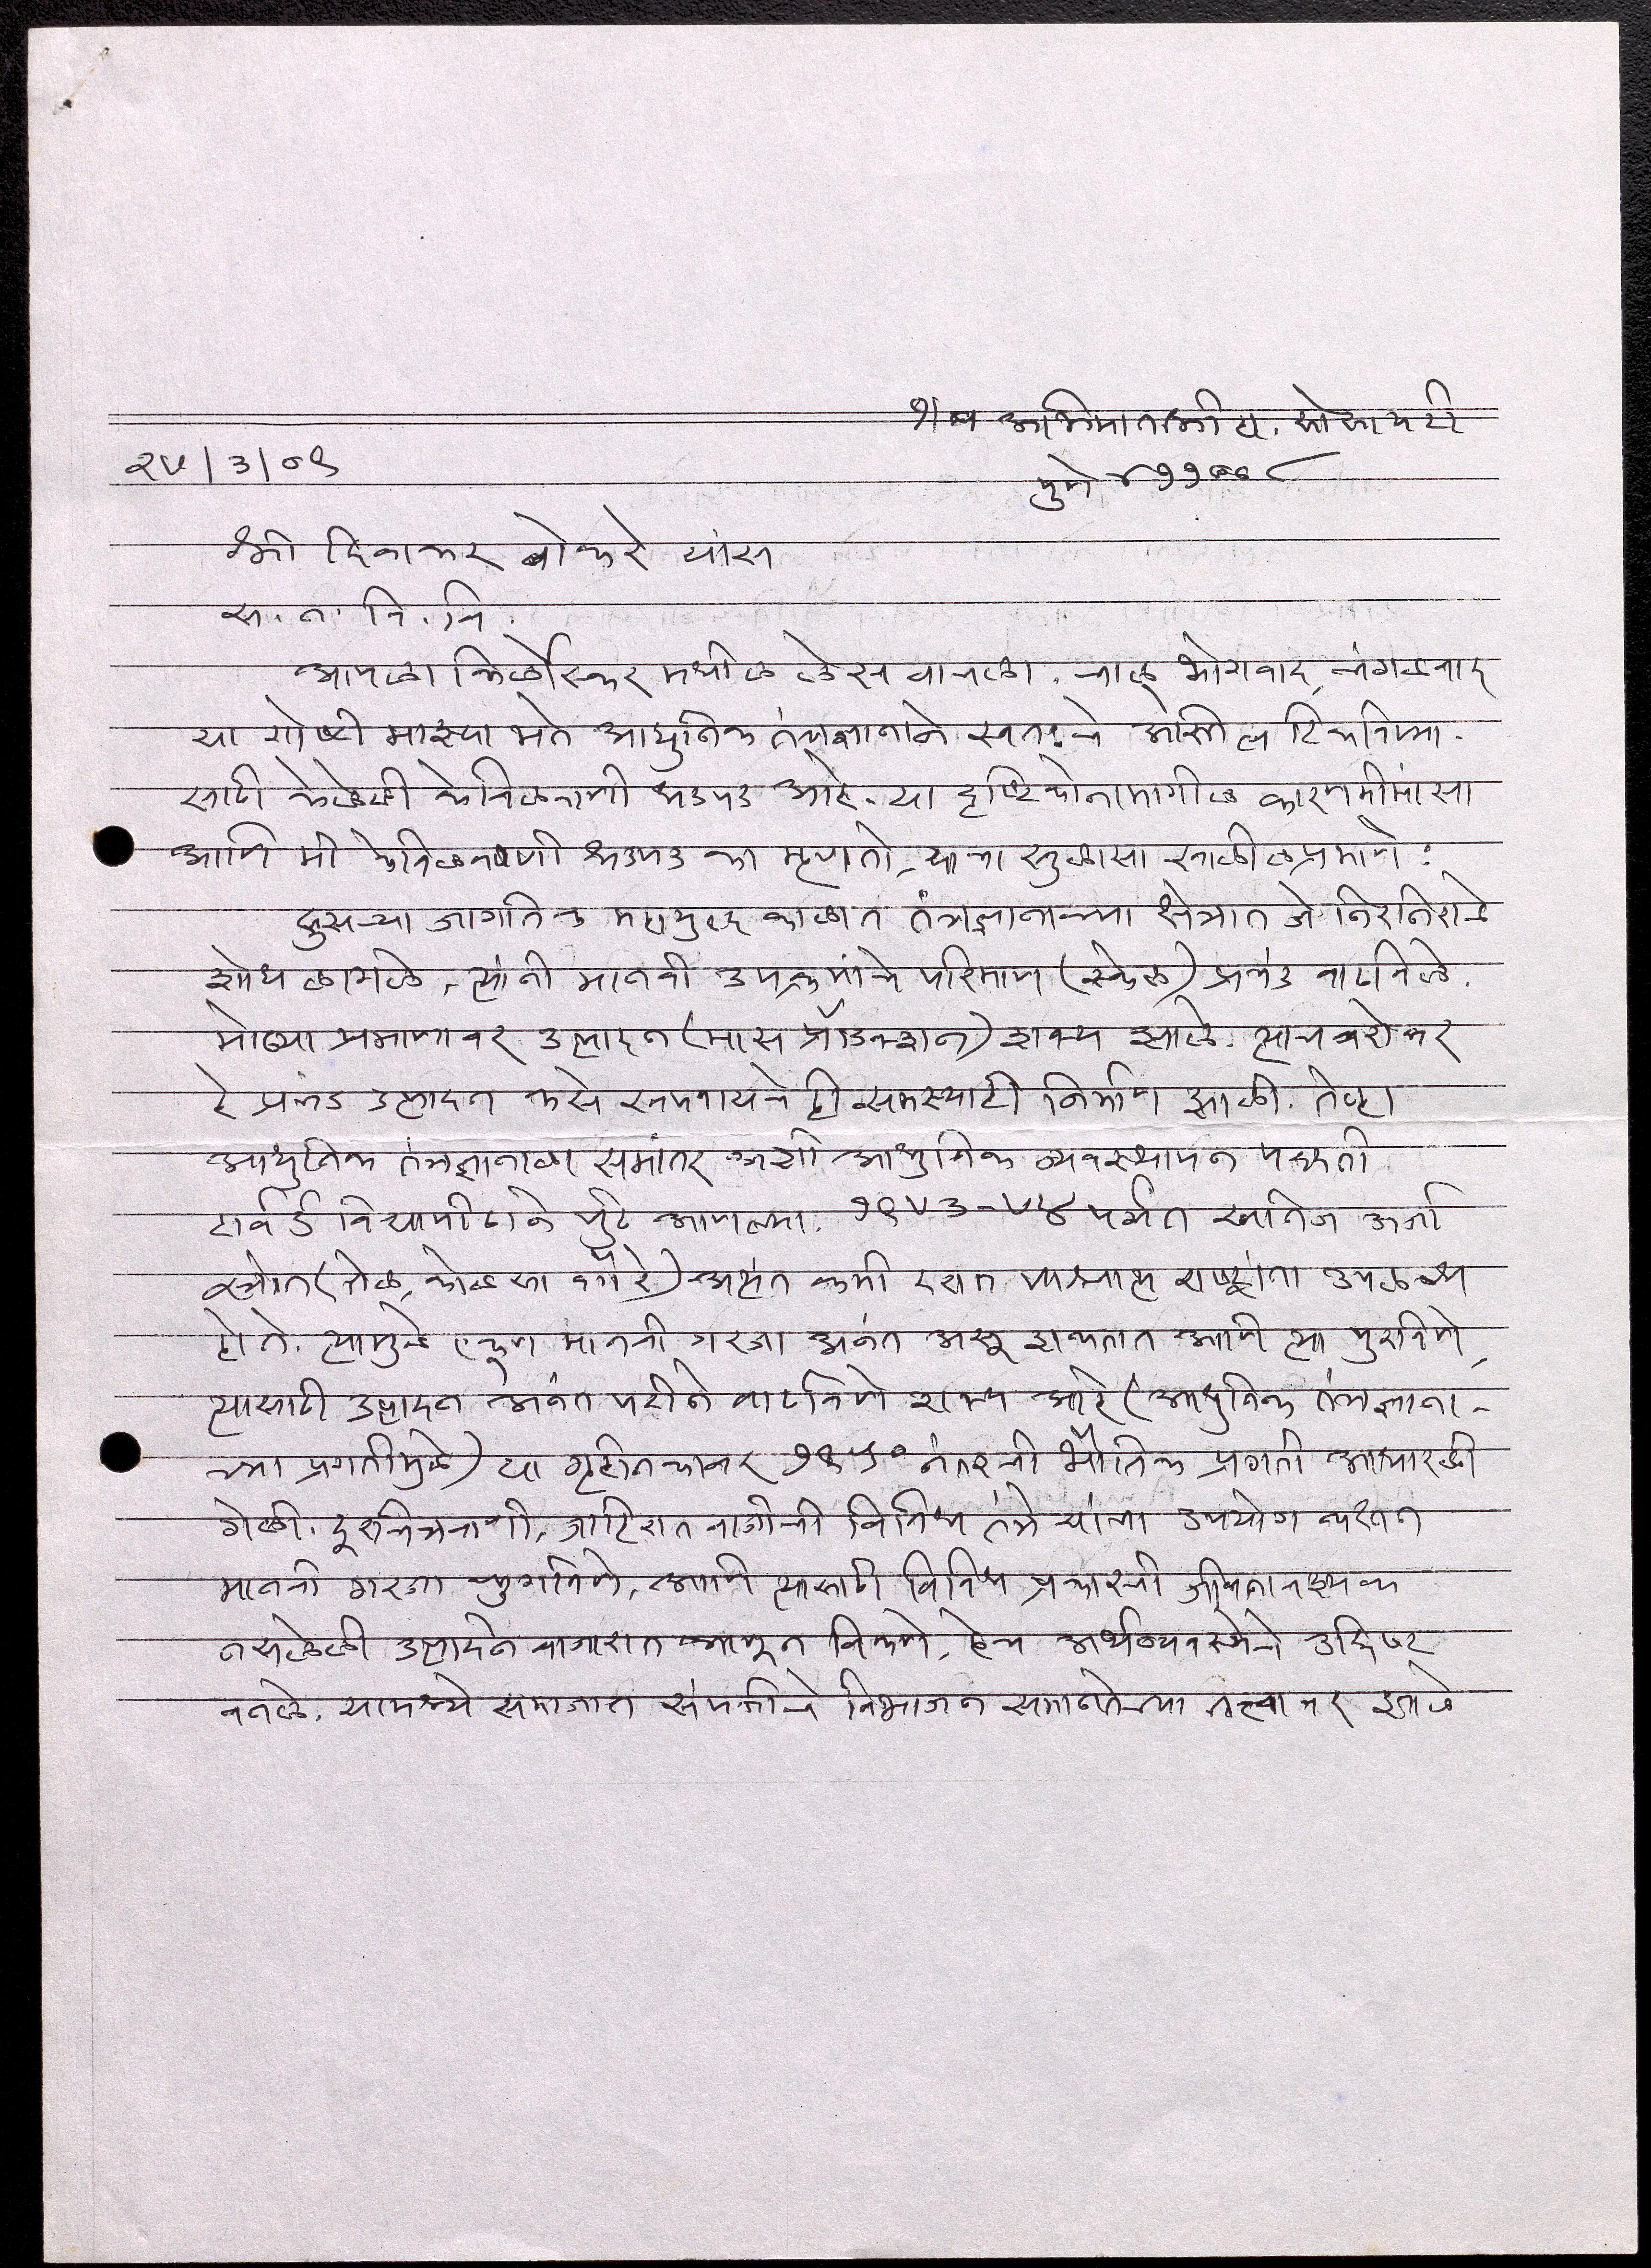 १/अ अभिमानश्री हौ. सोसायटी
२५/३/०९
पुणे ४११००८
श्री दिवाकर बोकरे यांस
स. न. वि. वि.
आपला किर्लोस्कर मधील लेख वाचला. चालू भोगवाद, चंगळवाद
या गोष्टी माझ्या मते आधुनिक तंत्रज्ञानाने स्वतःचे अस्तित्व टिकविण्या-
साठी केलेली केविलवाणी धडपड आहे. या दृष्टिकोनामागील कारणमीमांसा
आणि मी केविलवाणी धडपड का म्हणतो, याचा खुलासा खालीलप्रमाणे:
दुसऱ्या जागतिक महायुद्ध काळात तंत्रज्ञानाच्या क्षेत्रात जे निरनिराळे
शोध लागले, त्यांनी मानवी उपक्रमांचे परिमाण (स्केल) प्रचंड वाढविले.
मोठ्या प्रमाणावर उत्पादन (मास प्रॉडक्शन) शक्य झाले. त्याचबरोबर
हे प्रचंड उत्पादन कसे खपवायचे ही समस्याही निर्माण झाली. तेव्हा
आधुनिक तंत्रज्ञानाला समांतर अशी आधुनिक व्यवस्थापन पद्धती
हार्वर्ड विद्यापीठाने पुढे आणल्या. १९५३-५४ पर्यंत खनिज ऊर्जा
स्त्रोत (तेल, कोळसा वगैरे) अत्यंत कमी दरात पाश्चात्य राष्ट्रांना उपलब्ध
होते. त्यामुळे एकूण मानवी गरजा अनंत असू शकतात आणि त्या पुरविणे,
त्यासाठी उत्पादन अनंत पटीने वाढविणे शक्य आहे (आधुनिक तंत्रज्ञाना-
च्या प्रगतीमुळे) या गृहीतकावर १९५० नंतरची भौतिक प्रगती आधारली
गेली. दूरचित्रवाणी, जाहिरातबाजीची विविध तंत्रे यांचा उपयोग करून
मानवी गरजा फुगविणे, आणि त्यासाठी विविध प्रकारची जीवनावश्यक
नसलेली उत्पादने बाजारात आणून विकणे, हेच अर्थव्यवस्थेचे उद्दिष्ट
बनले. यामध्ये समाजात संपत्तीचे विभाजन समानतेच्या तत्त्वावर झाले